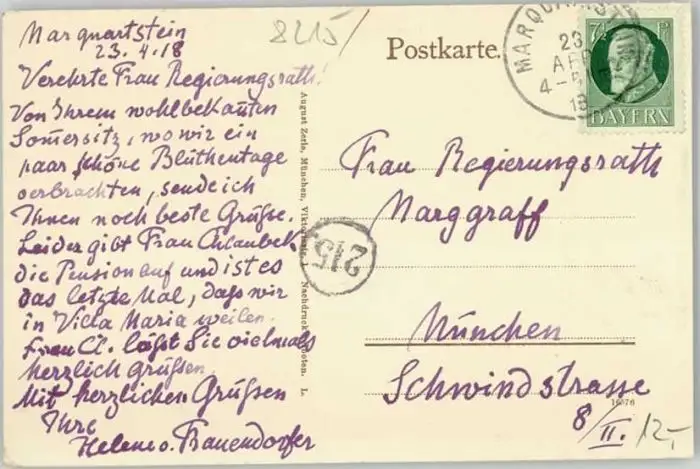 Marquartstein
23.4.18
Verehrte Frau Regierungsrath!
Von Ihrem wohlbekannten
Somersitz, wo wir ein
paar schöne Blüthentage
verbrachten, sende ich
Ihnen noch beste Grüsse.
Leider gibt Frau
die Pension auf und ist es
das letzte Mal, dass wir
in Villa Maria weilen.
Frau Cl. lässt Sie vielmals
herzlich grüssen.
Mit herzlichen Grüssen
Ihre
Helene v. Frauendorfer
8215/
Postkarte.
MARQUARTST
23
APR
4-5
18
7½ P
BAYERN
Frau Regierungsrath
Marggraff
München
Schwindstrasse
8/II.
12,-
215
August Zerle, München,
Nachdruck verboten. L.